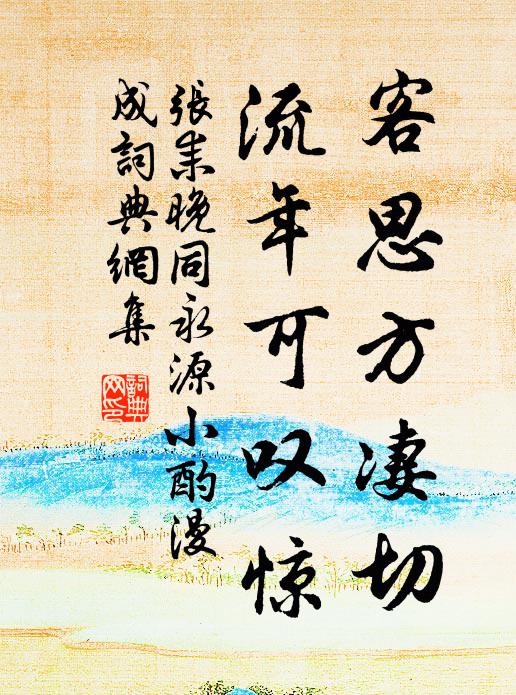 客思方凄切
流年可叹惊
張耒晚同永源小酌漫
成詞典網集
詞典
网印